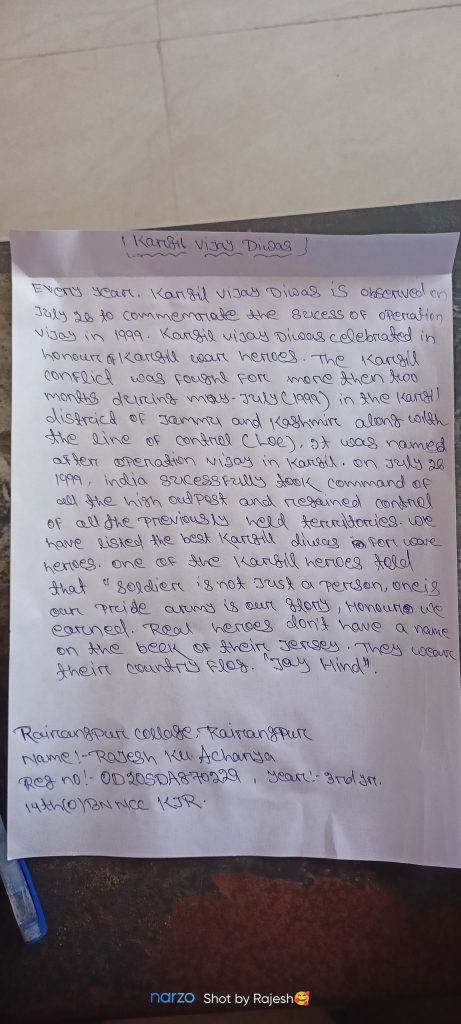 [Kargil Vijay Diwas]
Every year, Kargil Vijay Diwas is observed on
July 26 to commemorate the sucess of operation
vijay in 1999. Kargil vijay Diwas celebrated in
honour of Kargil war heroes. The Kargil
conflict was fought for more then two
months during may-July (1999) in the Kargil
district of Jammu and Kashmir along with
the line of control (Loc). It was named
after operation vijay in Kargil. on July 26
1999, india successfully took command of
all the high outpost and regained control
of all the previously held territories. we
have listed the best Kargil diwas for wave
heroes. one of the Kargil heroes told
that "Soldier is not Just a person, one is
our pride army is our glory, Honour we
earned. Real heroes don't have a name
on the beck of their Jersey. They weare
their country flag. "Jay Hind".
Rairangpur collage, Rairangpur
Name:- Rajesh Ku. Acharya
Reg no:- OD20SDA870229, year:- 3rd yr.
14th(O)BN NCC KJR.
narzo Shot by Rajesh🥰